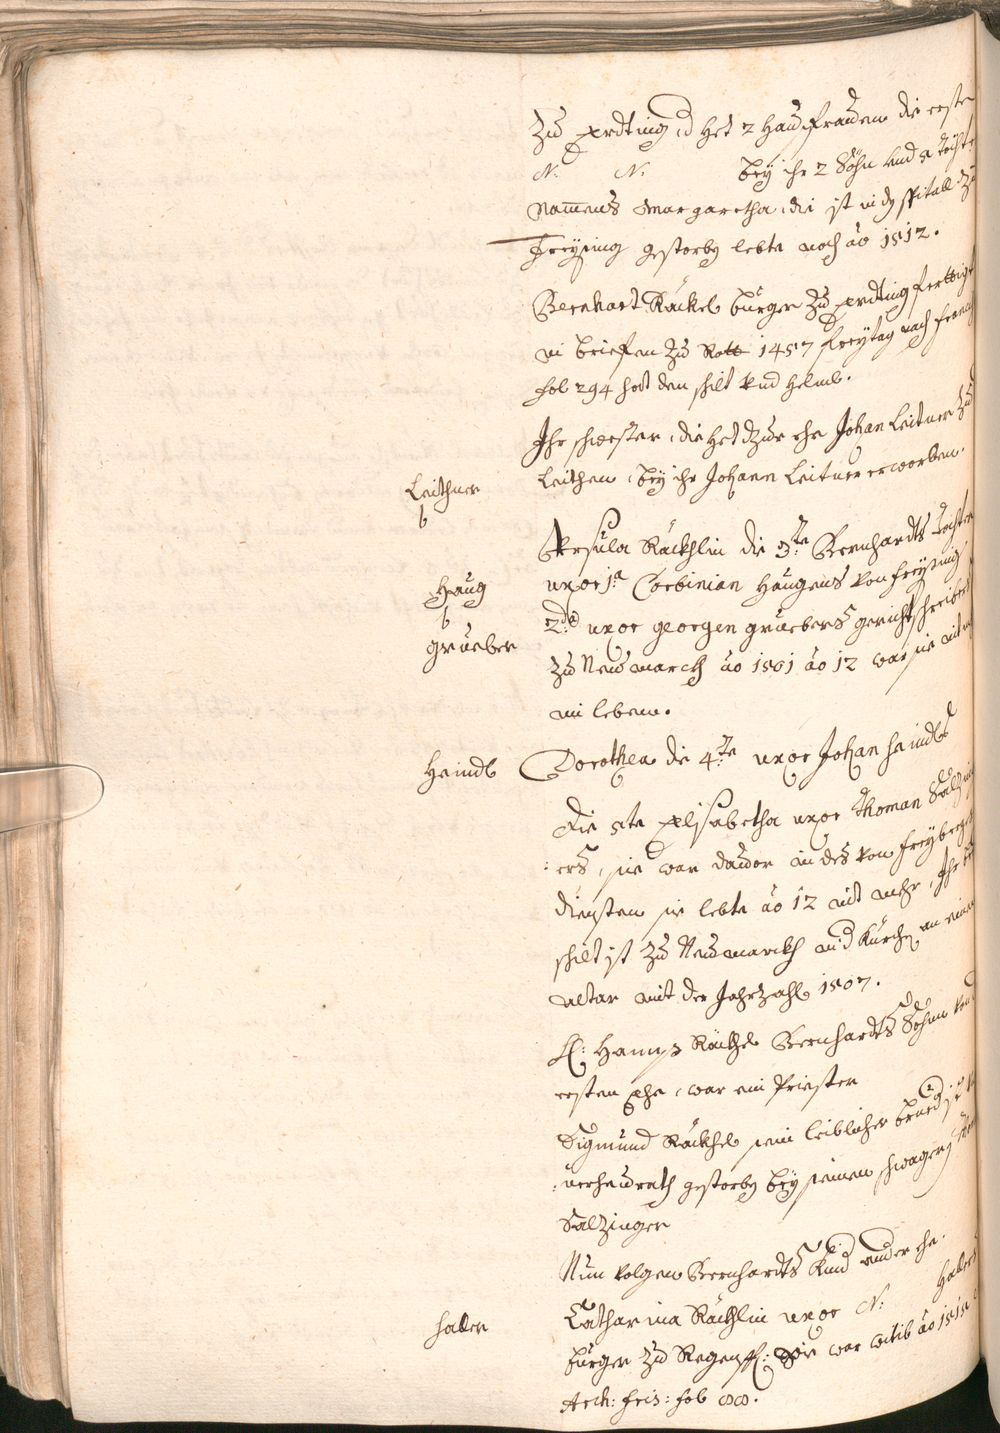 Zu Erdting, d Het 2 Hausfrauen die erste
N: N: bey ihr 2 Söhn und 5 Töchter
Namens Margaretha, die ist in dz spitall zu
Freysing gestorbn lebte noch ão 1512.
Bernhart Räckel burger zu Erdting fertiget
in brieffen zu Rott 1457 Freytag nach Francisci
fol 294 hat den schilt und Helmb.
Ihr schwester, die Het dzur ehe Johan Leitner zu
Leithen, bey ihr Johann Leitner erworben.
Leithner
b
Ursula Räckhlin die 3te Bernhardts Tochter
uxor 1a Corbinian Haugens von Freysing
Haug
b
2do uxor georgen gruebers gerichtschreiber
grueber
zu Neumarckh ão 1501 ão 12 war sie nit mehr
im leben.
Heindl
Dorothea die 4te uxor Johan Heindls
Die 5te Elisabetha uxor Thoman Salzing
:ers, sie war dauor in des von Freyberg
diensten sie lebte ão 12 nit mehr, Ihr
schilt ist zu Neumarckh in d Kürchen an einem
altar mit der Jahrzahl 1507.
H: Hanns Räckhel Bernhardts Sohn von d
ersten Ehe, war ein Priester
Sigmund Räckhel sein leiblicher brued ist
:uerheurath gestorbn bey seinem schwagern Thoman
Salzinger
Nun volgen Bernhardts Kind ander ehe.
Catharina Räckhlin uxor N: Haller
haller
burger zu Regenspf: Sie war witib ão 1515
Arch: fris: fol 88.